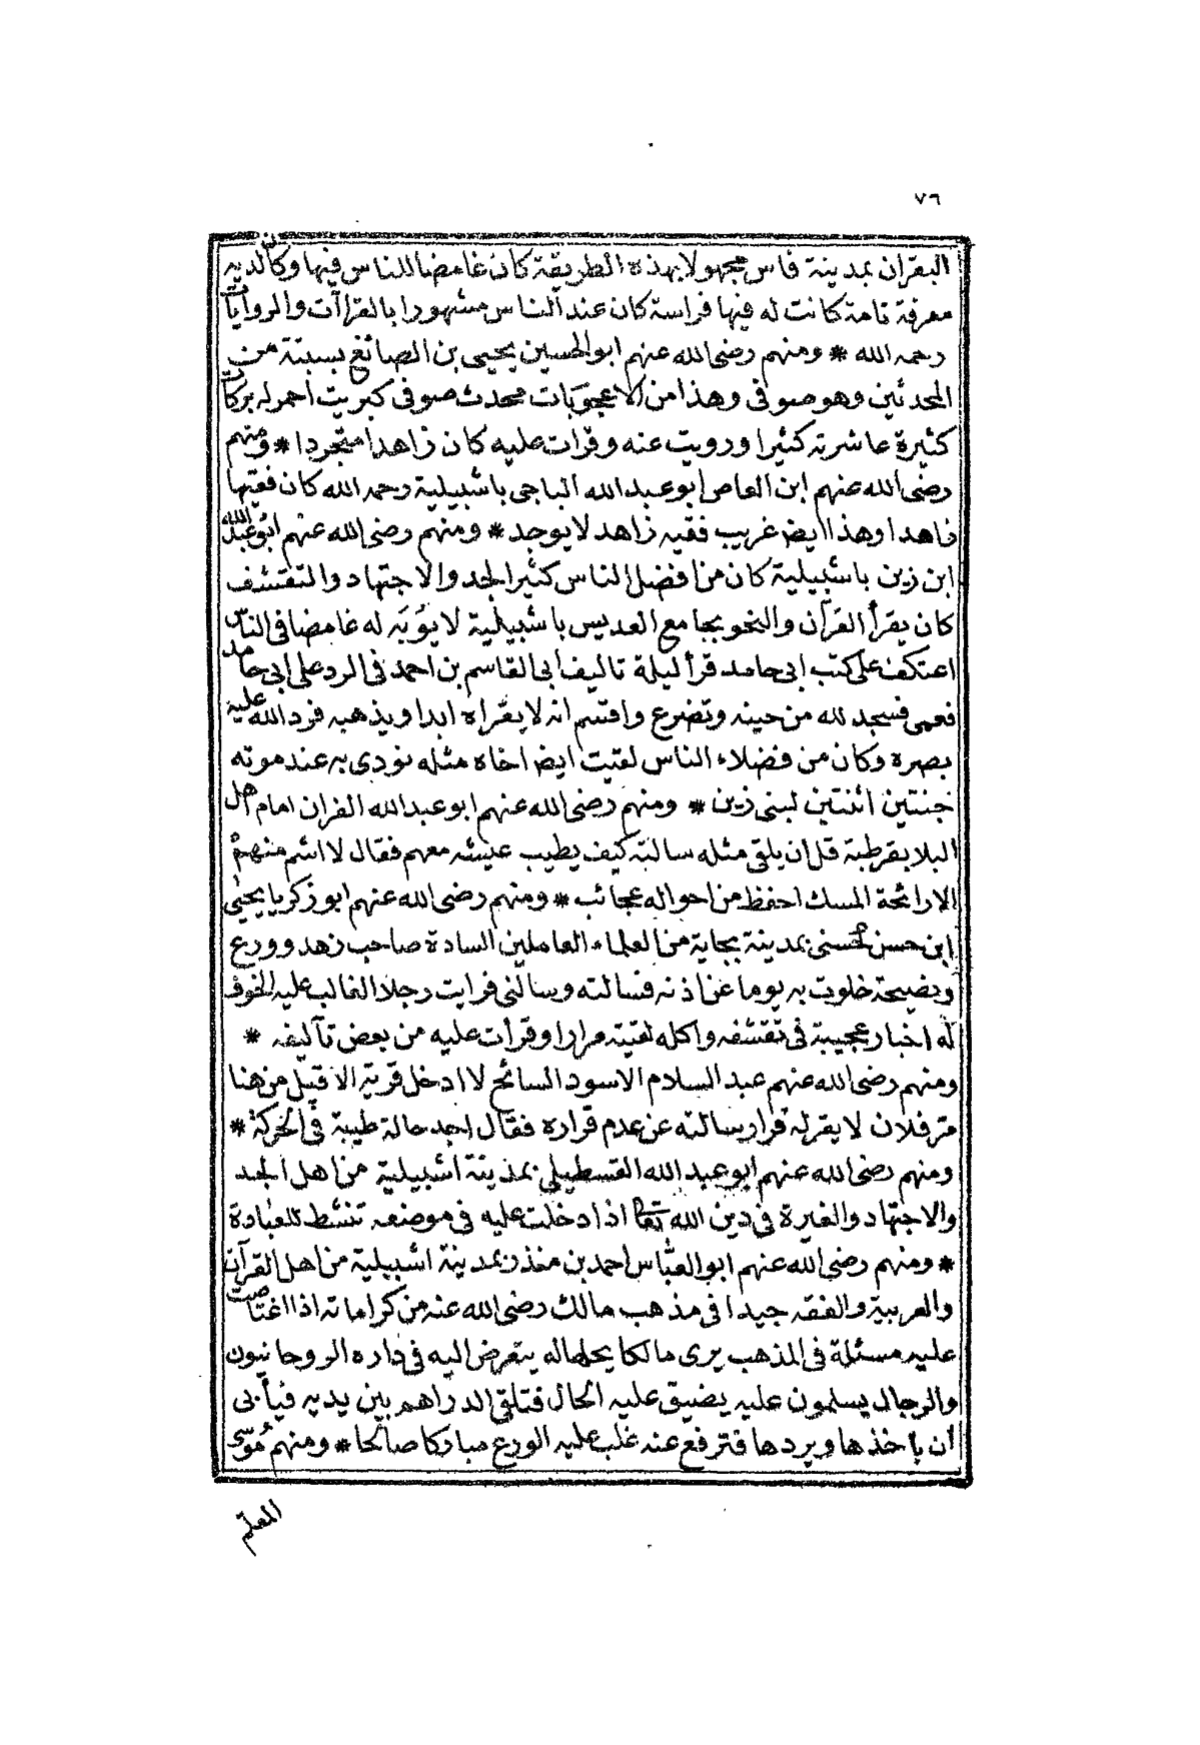 ٧٦
البقران بمدينة فاس مجهولا بهذه الطريقة كان غامضا للناس فيها وكان لديه
معرفة تامة كانت له فيها فراسة كان عند الناس مشهورا بالقراآت والروايات
رحمه الله * ومنهم رضى الله عنهم ابو الحسين يحيى بن الصائغ بسبتة من
المحدثين وهو صوفى وهذا من الاعجوبات محدث صوفى كبريت احمر له بركات
كثيرة عاشرته كثيرا ورويت عنه وقرات عليه كان زاهدا متجردا * ومنهم
رضى الله عنهم ابن العاص ابو عبد الله الباجى باشبيلية رحمه الله كان فقيها
زاهدا وهذا ايضا غريب فقيه زاهد لا يوجد * ومنهم رضى الله عنهم ابو عبد الله
ابن زين باشبيلية كان من افضل الناس كثير الجد والاجتهاد والتقشف
كان يقرأ القرآن والنحو بجامع العديس باشبيلية لا يؤبَه له غامضا فى الناس
اعتكف على كتب ابى حامد قرأ ليلة تاليف أبى القاسم بن احمد فى الرد على ابى حامد
فعمى فسجد لله من حينه وتضرع واقسم انه لا يقراه ابدا ويذهبه فرد الله عليه
بصره وكان من فضلاء الناس لقيت ايضا اخاه مثله نودى به عند موته
جنتين اثنتين لبنى زين * ومنهم رضى الله عنهم ابو عبد الله القران امام اهل
البلا بقرطبة قل ان يلقى مثله سالته كيف يطيب عيشه معهم فقال لا اشم منهم
الا رائحة المسك احفظ من احواله عجائب * ومنهم رضى الله عنهم ابو زكريا يحيى
ابن حسن الحسنى بمدينة بجاية من العلماء العاملين السادة صاحب زهد وورع
ونصيحة خلوت به يوما عن اذنه فسالته وسالنى فرايت رجلا الغالب عليه الخوف
له اخبار عجيبة فى تقشفه واكله لقيته مرارا وقرأت عليه من بعض تآليفه *
ومنهم رضى الله عنهم عبد السلام الاسود السائح لا ادخل قرية الا قيل من هنا
مر فلان لا يقر له قرار سالته عن عدم قراره فقال اجد حالة طيبة فى الحركة *
ومنهم رضى الله عنهم ابو عبد الله القسطيلى بمدينة اشبيلية من اهل الجد
والاجتهاد والغيرة فى دين الله تعالى اذا دخلت عليه فى موضعه تنشط للعبادة
* ومنهم رضى الله عنهم ابو العباس احمد بن منذر بمدينة اشبيلية من اهل القرآن
والعربية والفقه جيدا فى مذهب مالك رضى الله عنه من كراماته اذا اعتاصت
عليه مسئلة فى المذهب يرى مالكا يحلها له يتعرض اليه فى داره الروحانيون
والرجال يسلمون عليه يضيق عليه الحال فتلقى الدراهم بين يديه فيأبى
أن ياخذها ويردها فترفع عنه غلب عليه الورع مباركا صالحا * ومنهم موسى
المعلم